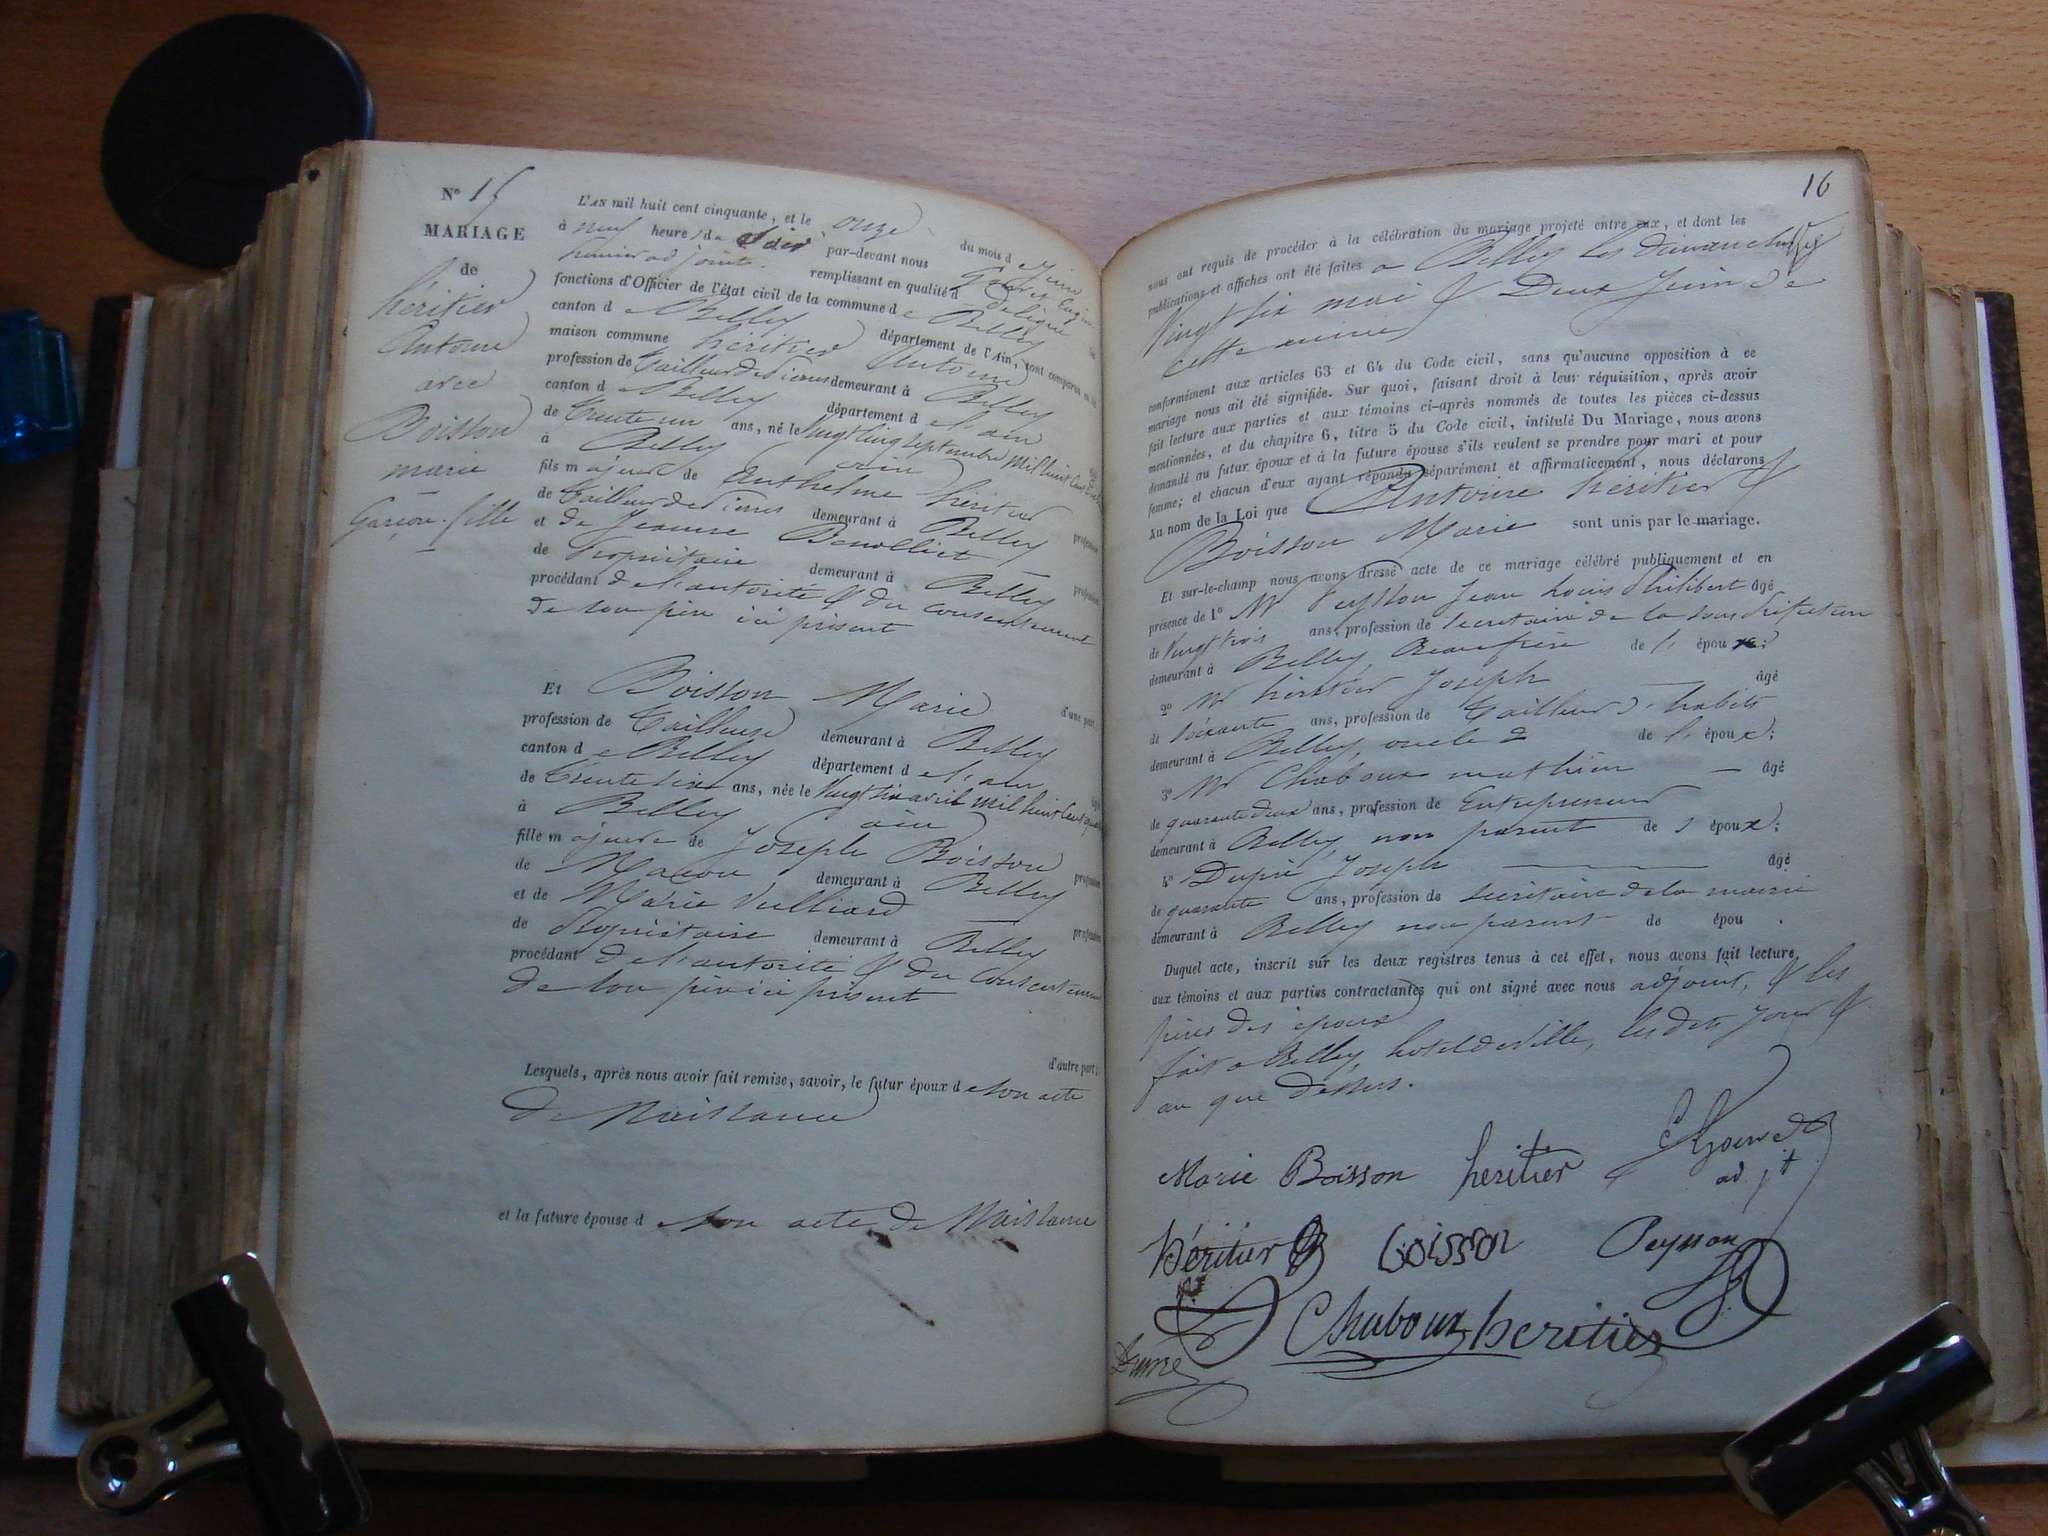 N° 15
MARIAGE
de
héritier
Antoine
avec
Boisson
marie
Garçon. fille
L'AN mil huit cent cinquante, et le onze du mois de Juin
à neuf heures du soir par-devant nous
premier adjoint. remplissant en qualité d
fonctions d'Officier de l'état civil de la commune de Belley
canton de Belley département de l'Ain, sont comparus en la
maison commune héritier Antoine
profession de tailleur de pierres demeurant à Belley
canton de Belley département de l'ain
de trente un ans, né le vingt cinq septembre mil huit cent
à Belley ain
fils majeur de Anthelme héritier profession
de tailleur de pierres demeurant à Belley
et de Jeanne profession
de Propriétaire demeurant à Belley
procédant de l'autorité & du consentement
de son père ici présent
d'une part.
Et Boisson Marie
profession de tailleuse demeurant à Belley
canton de Belley département de l'ain
de trente six ans, née le vingt six avril mil huit cent
à Belley ain
fille majeure de Joseph Boisson profession
de Maçon demeurant à Belley
et de Marie Vulliard profession
de Propriétaire demeurant à Belley
procédant de l'autorité & du consentement
de son père ici présent
d'autre part :
Lesquels, après nous avoir fait remise, savoir, le futur époux de son acte
de Naissance
et la future épouse d son acte de Naissance
16
nous ont requis de procéder à la célébration du mariage projeté entre eux, et dont les
publications et affiches ont été faites à Belley les dimanches
Vingt six mai & Deux Juin de
cette année
conformément aux articles 63 et 64 du Code civil, sans qu'aucune opposition à ce
mariage nous ait été signifiée. Sur quoi, faisant droit à leur réquisition, après avoir
fait lecture aux parties et aux témoins ci-après nommés de toutes les pièces ci-dessus
mentionnées, et du chapitre 6, titre 5 du Code civil, intitulé Du Mariage, nous avons
demandé au futur époux et à la future épouse s'ils veulent se prendre pour mari et pour
femme; et chacun d'eux ayant répondu séparément et affirmativement, nous déclarons
Au nom de la Loi que Antoine héritier &
Boisson Marie sont unis par le mariage.
Et sur-le-champ nous avons dressé acte de ce mariage célébré publiquement et en
présence de 1° Mr Peysson Jean Louis Philibert âgé
de Vingt trois ans, profession de secrétaire de la sous Préfecture
demeurant à Belley, Beaufrère de l' époux;
2° Mr héritier Joseph âgé
de soixante ans, profession de tailleur d'habits
demeurant à Belley, oncle de l' époux;
3° Mr Chaboux mathieu âgé
de quarante deux ans, profession de Entrepreneur
demeurant à Belley, non parent de s époux;
4° Dupré Joseph âgé
de quarante ans, profession de secrétaire de la mairie
demeurant à Belley non parent de épou .
Duquel acte, inscrit sur les deux registres tenus à cet effet, nous avons fait lecture
aux témoins et aux parties contractantes qui ont signé avec nous adjoint, & les
pères des époux
fait à Belley, hotel de Ville, les dits jour &
an que dessus.
Marie Boisson héritier
adjt
héritier Boisson Peysson
Chaboux heritier